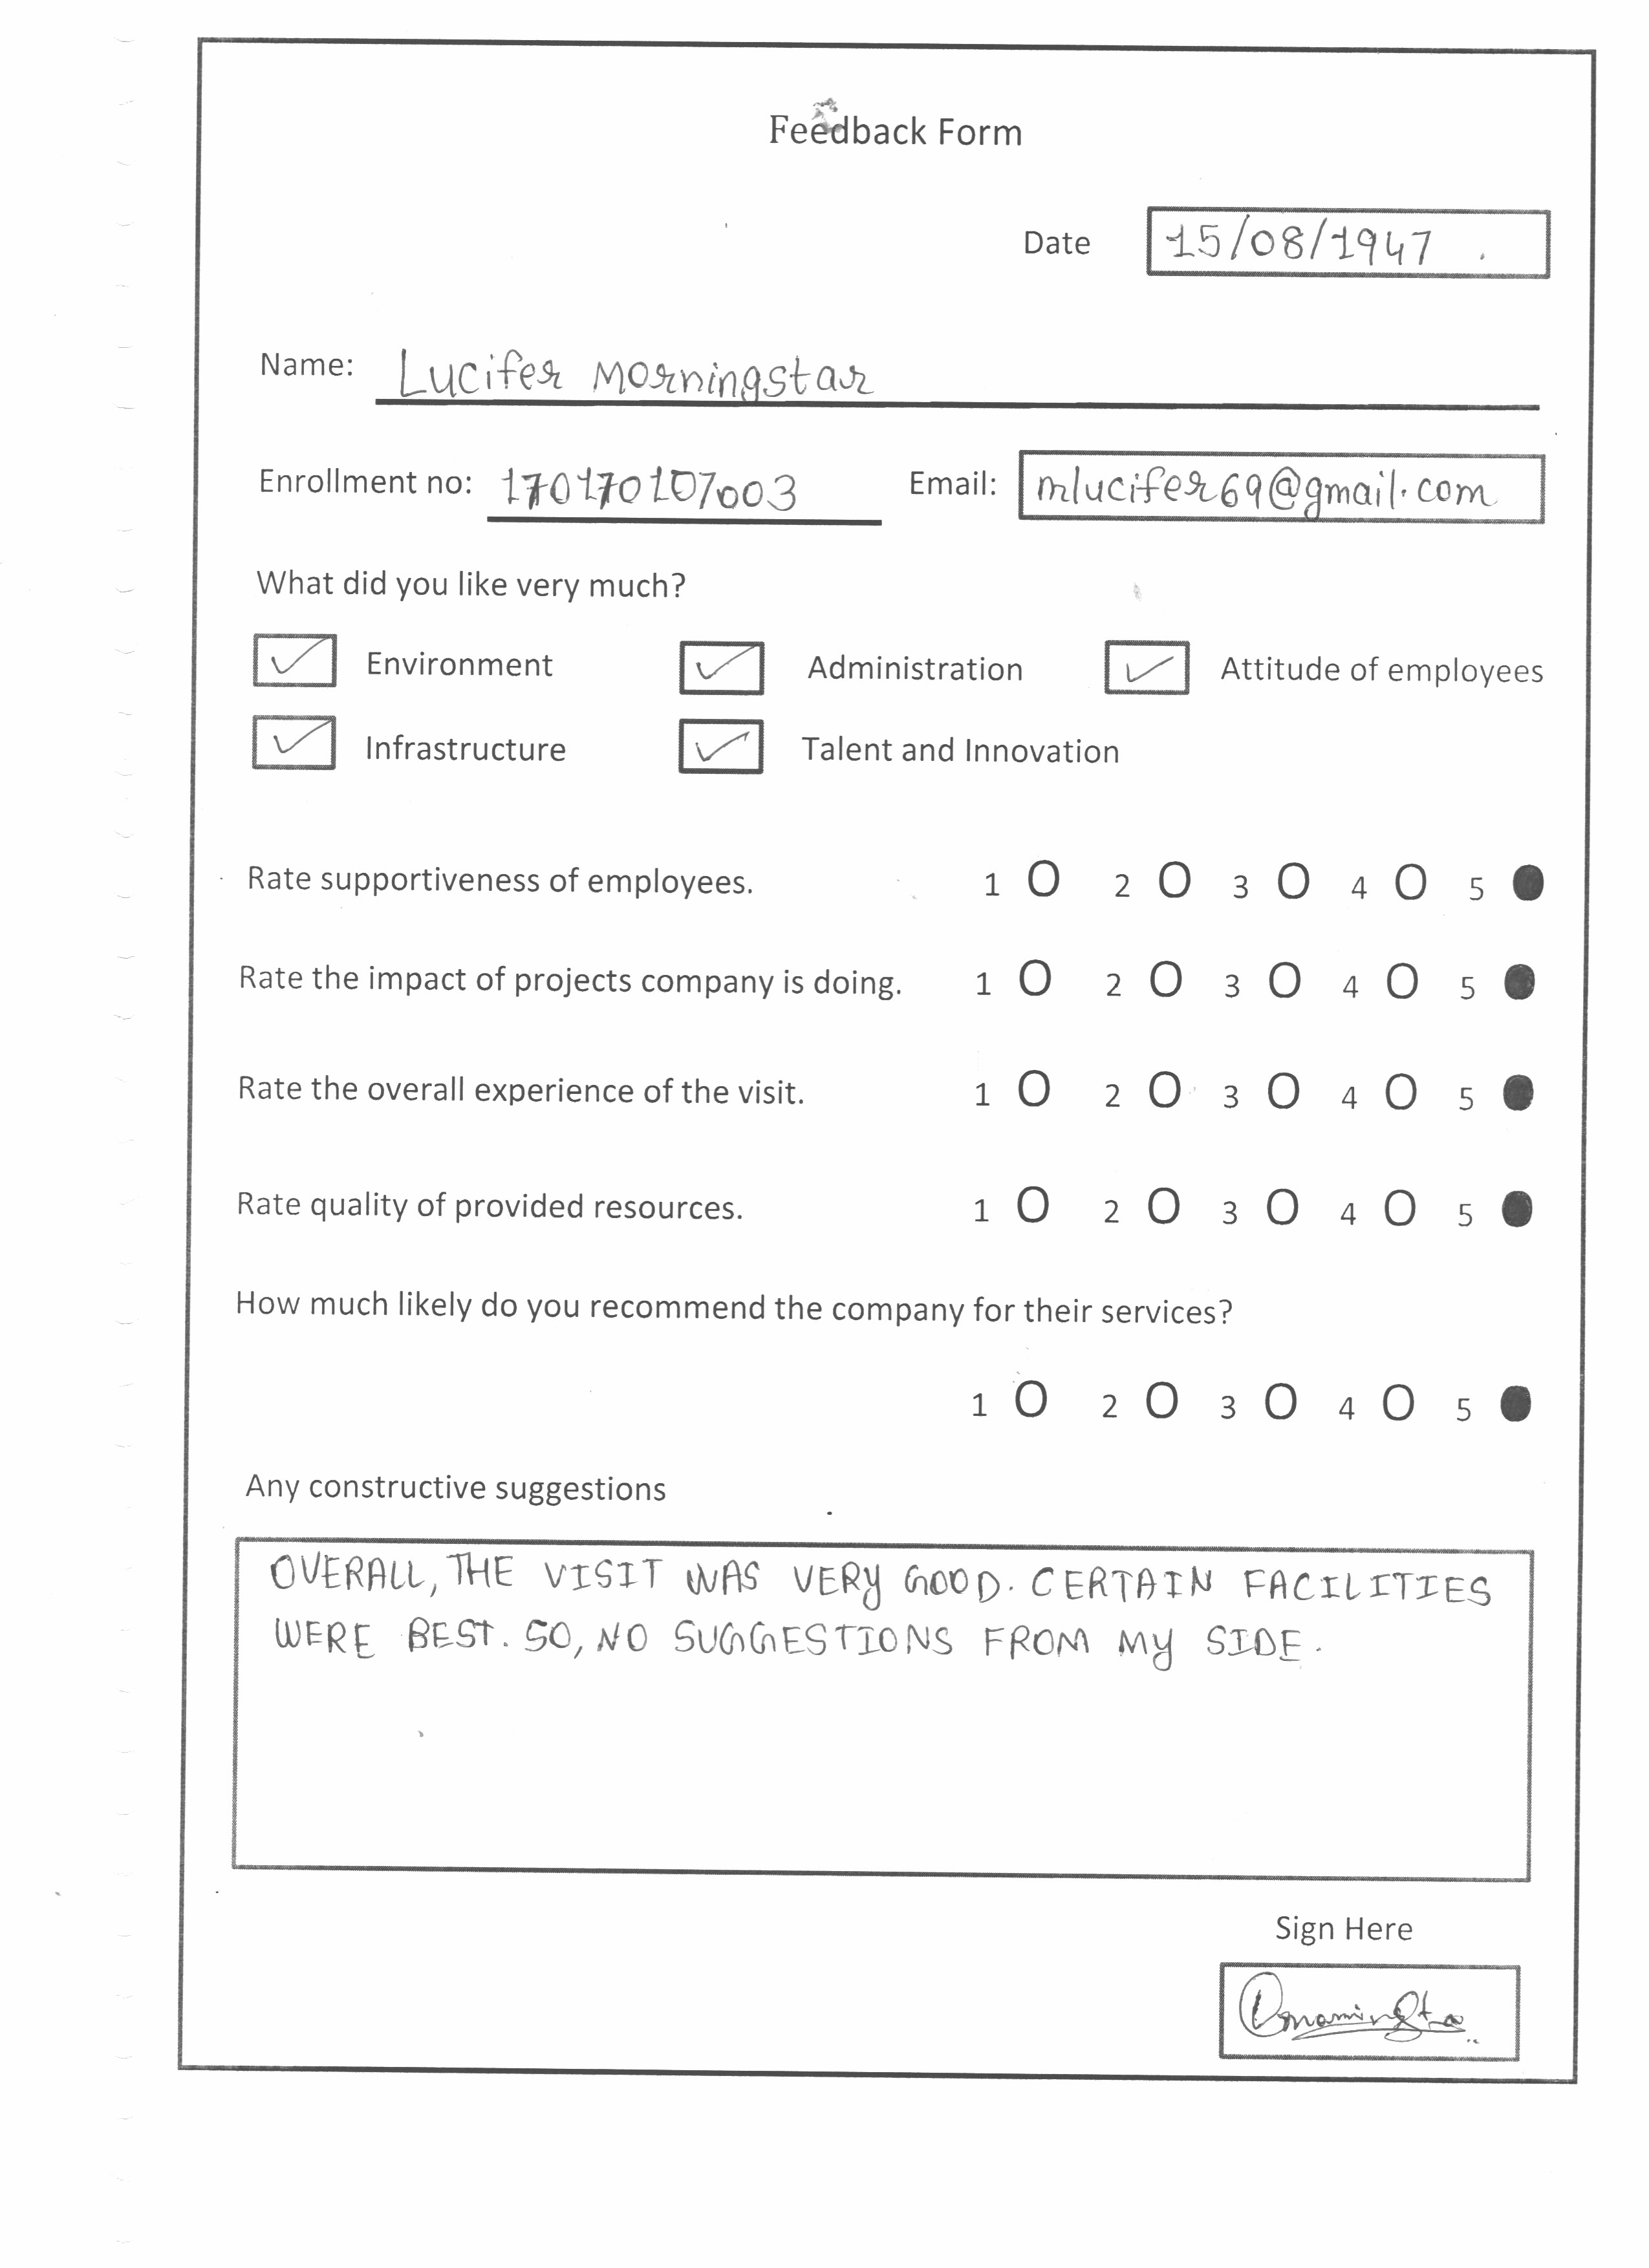 Feedback Form
Date 15/08/1947
Name: Lucifer Morningstar
Enrollment no: 170170107003 Email: mlucifer69@gmail.com
What did you like very much?
Environment Administration Attitude of employees
Infrastructure Talent and Innovation
Rate supportiveness of employees. 1 2 3 4 5
Rate the impact of projects company is doing. 1 2 3 4 5
Rate the overall experience of the visit. 1 2 3 4 5
Rate quality of provided resources. 1 2 3 4 5
How much likely do you recommend the company for their services?
1 2 3 4 5
Any constructive suggestions
OVERALL, THE VISIT WAS VERY GOOD. CERTAIN FACILITIES
WERE BEST. SO, NO SUGGESTIONS FROM MY SIDE.
Sign Here